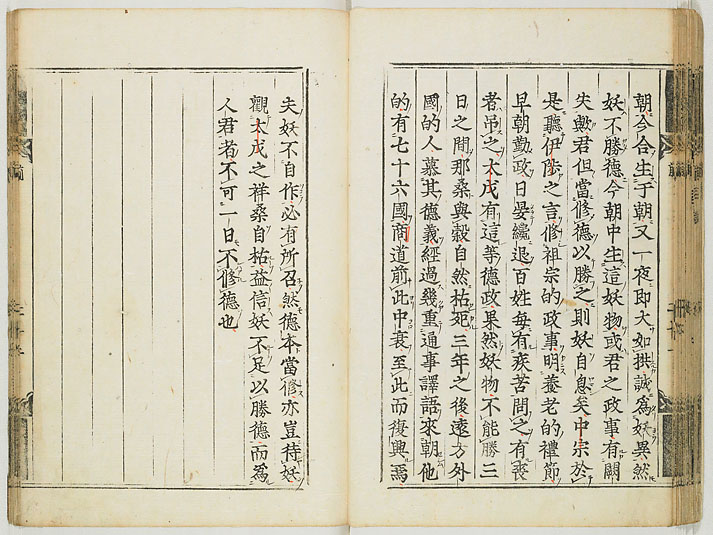 朝今合生于朝又一夜即大如拱誠爲妖異然
妖不勝德今朝中生這妖物或君之政事有闕
失歟君但當修德以勝之則妖自息矣中宗於
是聽伊陟之言修祖宗的政事明養老的禮節
早朝勤政日晏纔退百姓每有疾苦問之有喪
者吊之太戊有這等德政果然妖物不能勝三
日之間那桑與穀自然枯死三年之後遠方外
國的人慕其德義經過幾重通事譯語來朝他
的有七十六國商道前此中衰至此而復興焉
夫妖不自作必有所召然德本當修亦豈待妖
觀太戊之祥桑自枯益信妖不足以勝德而爲
人君者不可一日不修德也